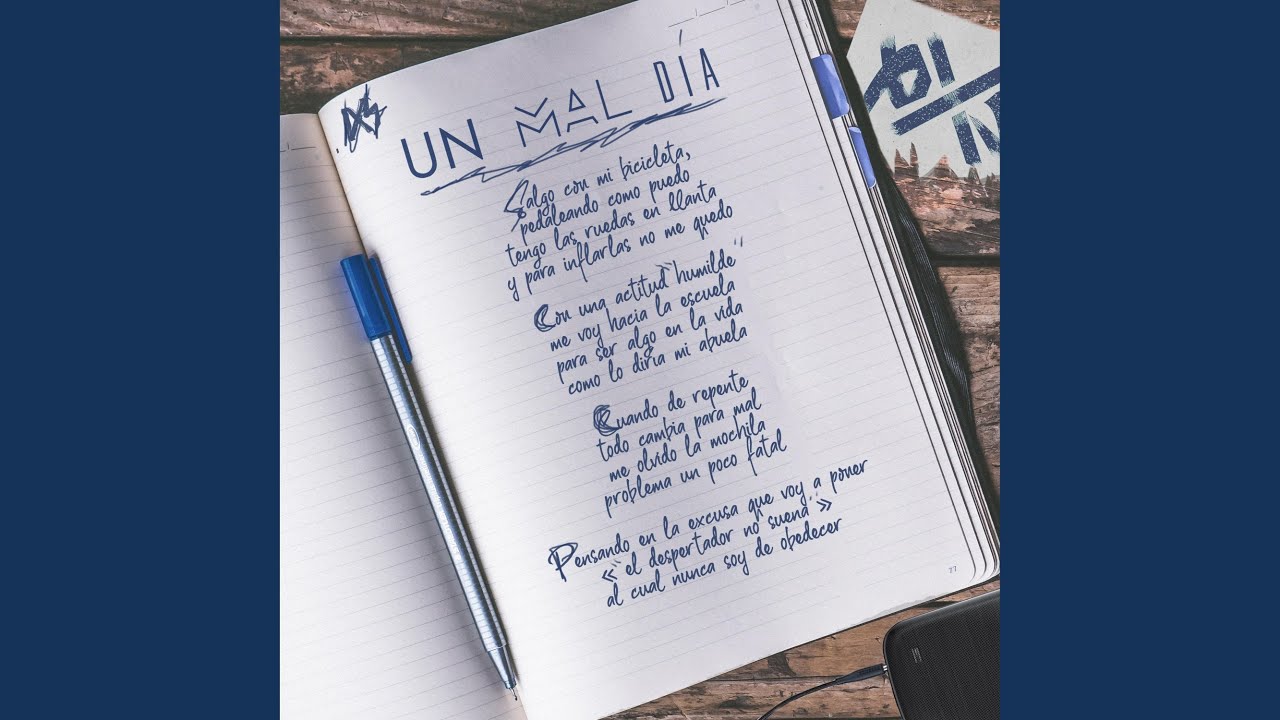 UN MAL DÍA
Salgo con mi bicicleta,
pedaleando como puedo
tengo las ruedas en llanta
y para inflarlas no me quedo
Con una actitud "humilde"
me voy hacia la escuela
para ser algo en la vida
como lo diria mi abuela
Cuando de repente
todo cambia para mal
me olvido la mochila
problema un poco fatal
Pensando en la excusa que voy a poner
«"el despertador no suena"»
al cual nunca soy de obedecer
77